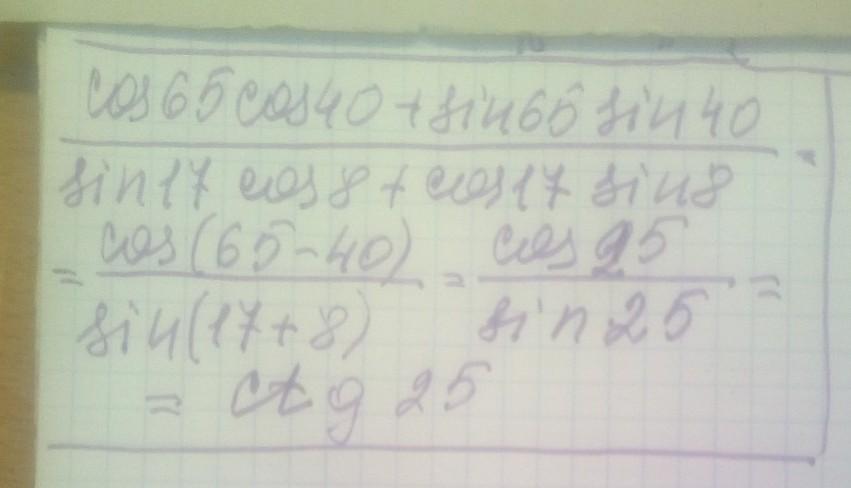 cos65cos40+sin65 sin40
sin17 cos8+cos17 sin8
= cos(65-40) = cos 25 =
sin(17+8) sin 25
= ctg 25